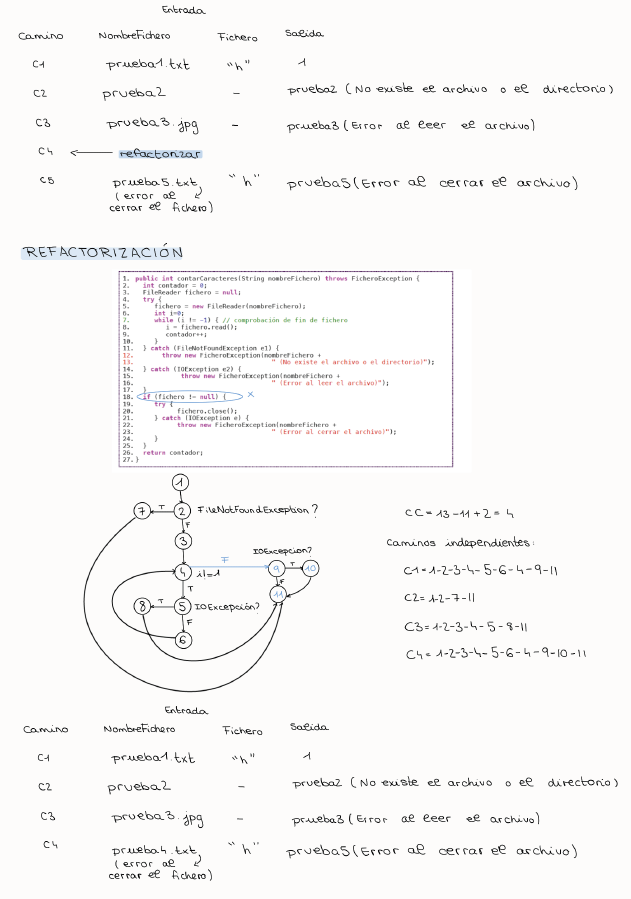 Entrada
Camino NombreFichero Fichero Salida
C1 prueba1.txt "h" 1
C2 prueba2 - prueba2 (No existe el archivo o el directorio)
C3 prueba3.jpg - prueba3 (Error al leer el archivo)
C4 ← refactorizar
C5 prueba5.txt "h" prueba5 (Error al cerrar el archivo)
(error al
cerrar el fichero)
REFACTORIZACIÓN
1. public int contarCaracteres(String nombreFichero) throws FicheroException {
2. int contador = 0;
3. FileReader fichero = null;
4. try {
5. fichero = new FileReader(nombreFichero);
6. int i=0;
7. while (i != -1) { // comprobación de fin de fichero
8. i = fichero.read();
9. contador++;
10. }
11. } catch (FileNotFoundException e1) {
12. throw new FicheroException(nombreFichero +
13. " (No existe el archivo o el directorio)");
14. } catch (IOException e2) {
15. throw new FicheroException(nombreFichero +
16. " (Error al leer el archivo)");
17. }
18. if (fichero != null) { x
19. try {
20. fichero.close();
21. } catch (IOException e) {
22. throw new FicheroException(nombreFichero +
23. " (Error al cerrar el archivo)");
24. }
25. }
26. return contador;
27. }
1
7 T 2 FileNotFoundException?
F
3
IOExcepcion?
4 i!=-1 F 9 T 10
T F
11
8 T 5 IOExcepción?
F
6
CC = 13-11+2 = 4
Caminos independientes:
C1 = 1-2-3-4-5-6-4-9-11
C2 = 1-2-7-11
C3 = 1-2-3-4-5-8-11
C4 = 1-2-3-4-5-6-4-9-10-11
Entrada
Camino NombreFichero Fichero Salida
C1 prueba1.txt "h" 1
C2 prueba2 - prueba2 (No existe el archivo o el directorio)
C3 prueba3.jpg - prueba3 (Error al leer el archivo)
C4 prueba4.txt "h" prueba5 (Error al cerrar el archivo)
(error al
cerrar el fichero)